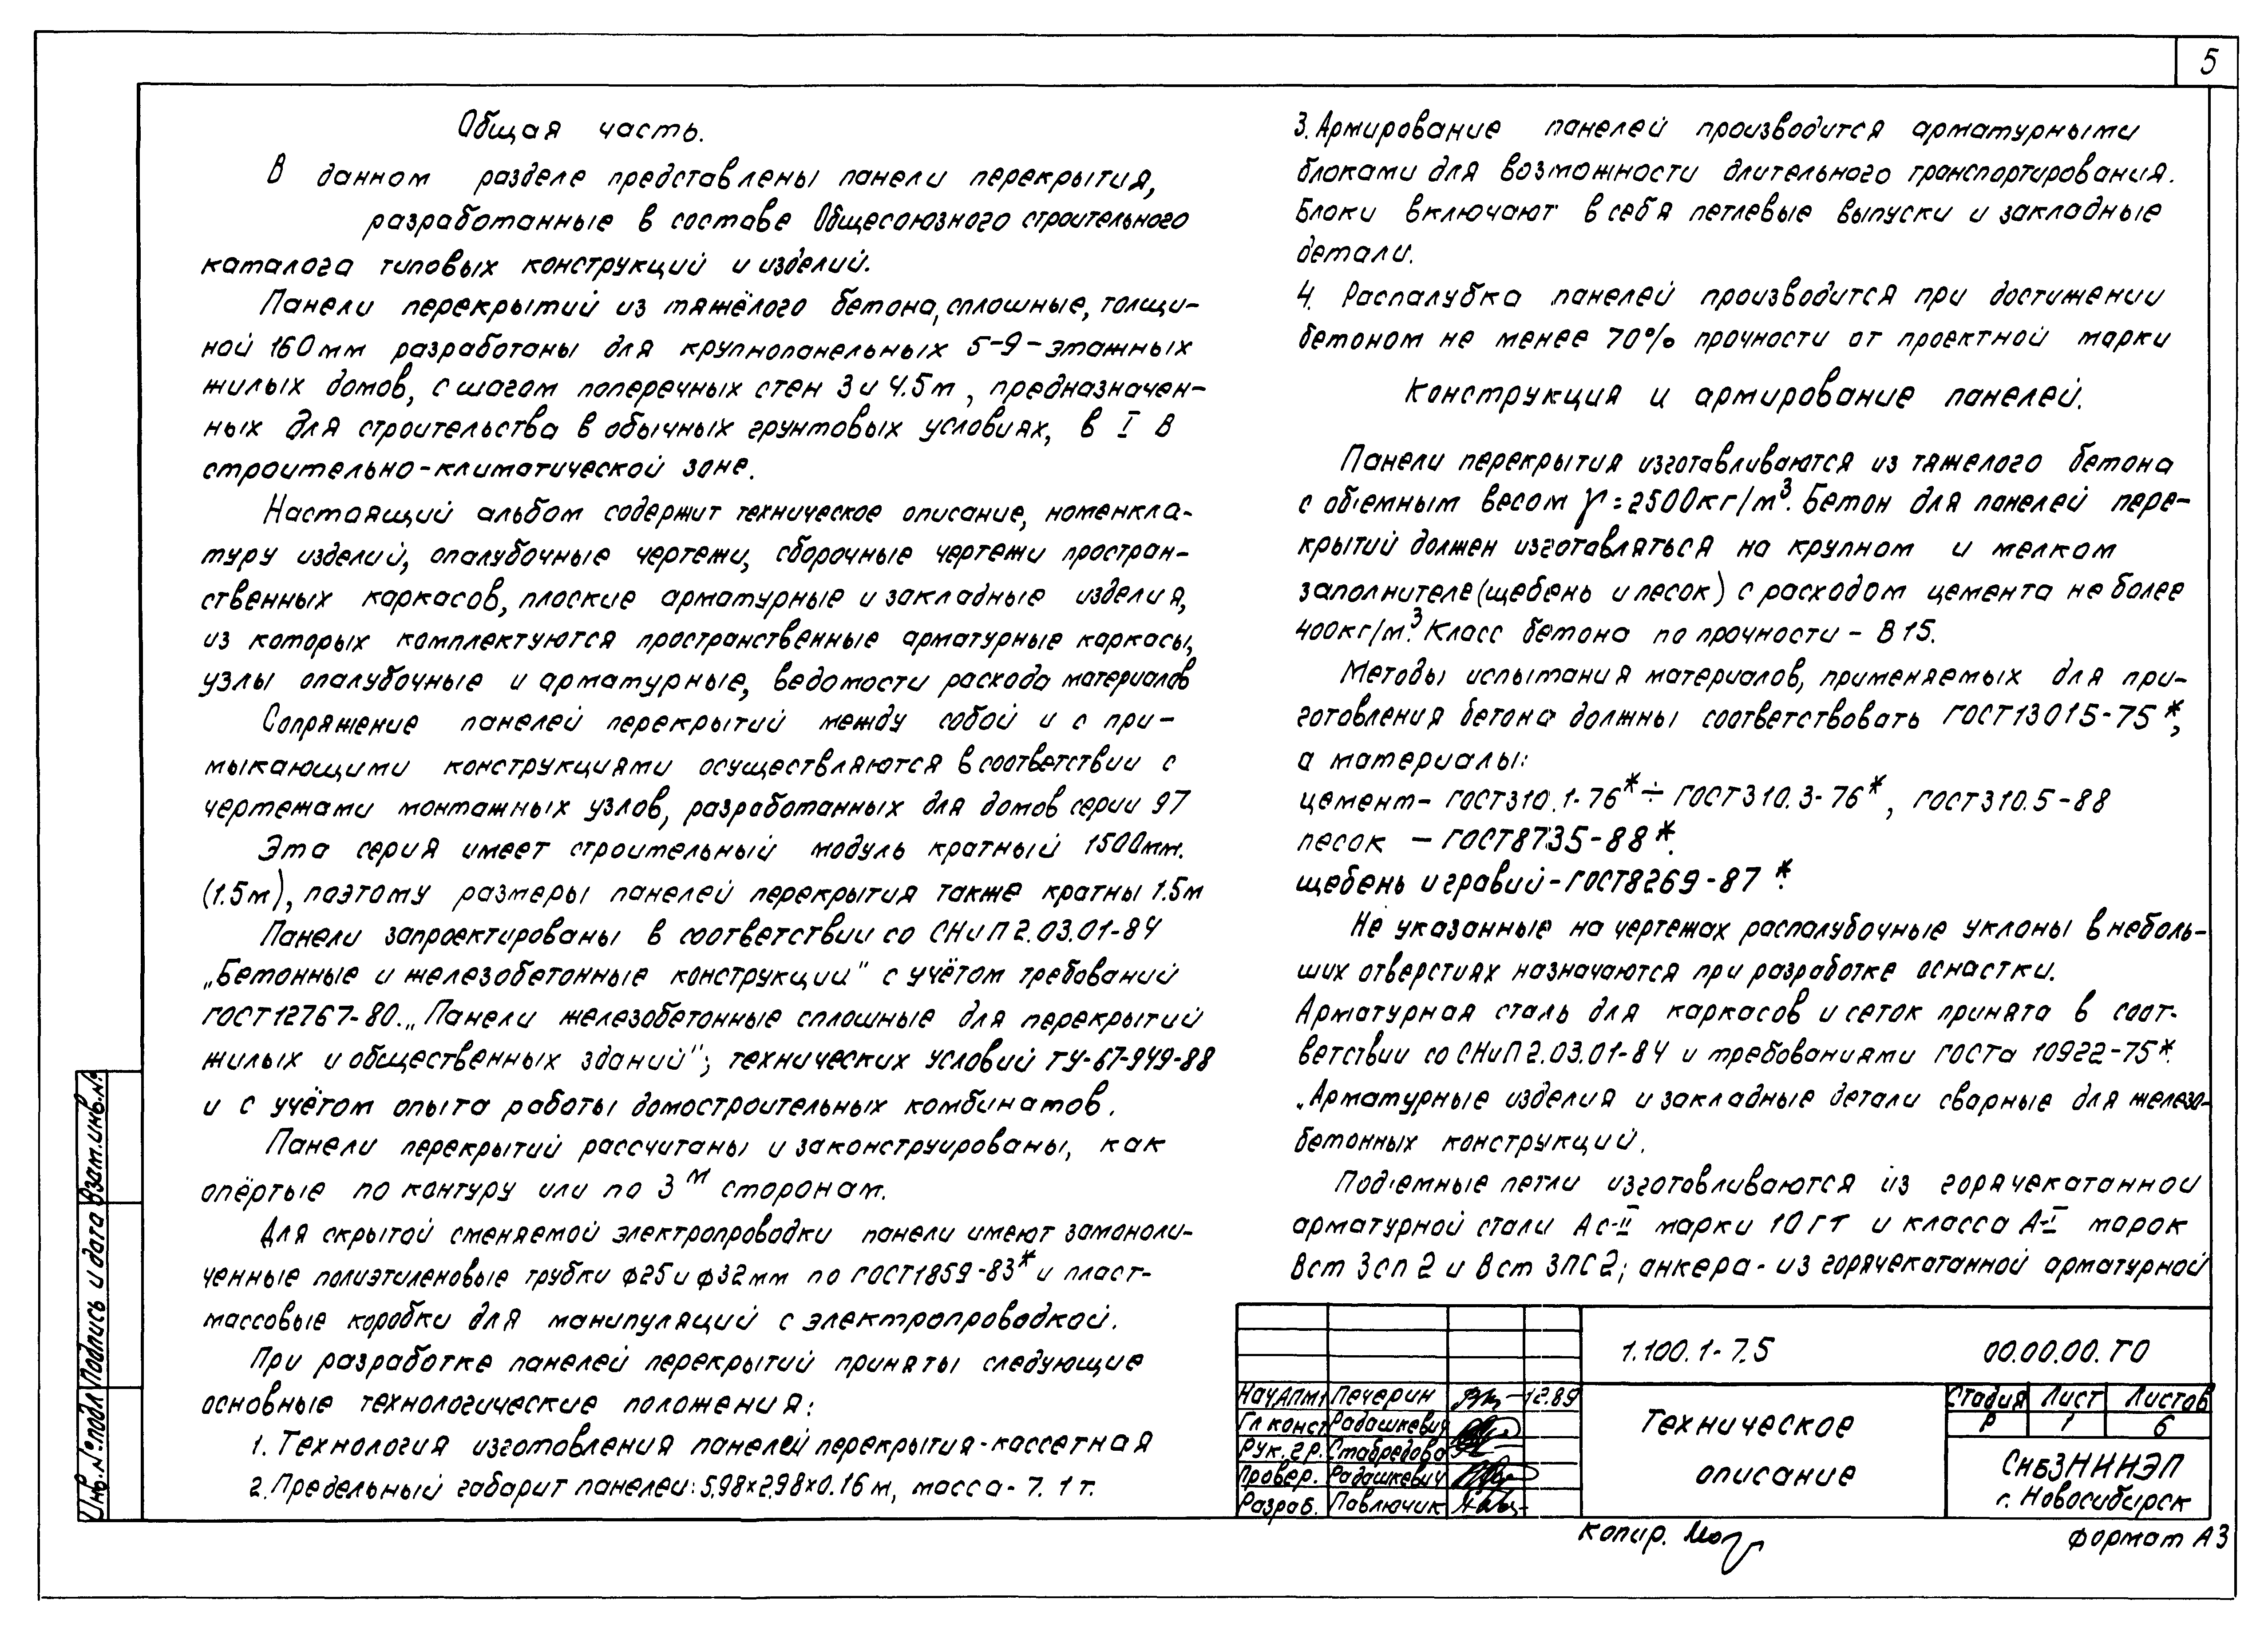 5
Общая часть.
В данном разделе представлены панели перекрытия,
разработанные в составе Общесоюзного строительного
каталога типовых конструкций и изделий.
Панели перекрытий из тяжёлого бетона, сплошные, толщи-
ной 160мм разработаны для крупнопанельных 5-9-этажных
жилых домов, с шагом поперечных стен 3 и 4.5м, предназначен-
ных для строительства в обычных грунтовых условиях, в I В
строительно-климатической зоне.
Настоящий альбом содержит техническое описание, номенкла-
туру изделий, опалубочные чертежи, сборочные чертежи простран-
ственных каркасов, плоские арматурные и закладные изделия,
из которых комплектуются пространственные арматурные каркасы,
узлы опалубочные и арматурные, ведомости расхода материалов
Сопряжение панелей перекрытий между собой и с при-
мыкающими конструкциями осуществляются в соответствии с
чертежами монтажных узлов, разработанных для домов серии 97
Эта серия имеет строительный модуль кратный 1500мм.
(1.5м), поэтому размеры панелей перекрытия также кратны 1.5м
Панели запроектированы в соответствии со СНиП 2.03.01-84
„Бетонные и железобетонные конструкции" с учётом требований
ГОСТ 12767-80. „Панели железобетонные сплошные для перекрытий
жилых и общественных зданий"; технических условий ТУ-67-949-88
и с учётом опыта работы домостроительных комбинатов.
Панели перекрытий рассчитаны и законструированы, как
опёртые по контуру или по 3м сторонам.
Для скрытой сменяемой электропроводки панели имеют замоноли-
ченные полиэтиленовые трубки ф25 и ф32мм по ГОСТ1859-83* и пласт-
массовые коробки для манипуляций с электропроводкой.
При разработке панелей перекрытий приняты следующие
основные технологические положения:
1. Технология изготовления панелей перекрытия-кассетная
2. Предельный габарит панелей: 5.98×2.98×0.16м, масса-7.1т.
3. Армирование панелей производится арматурными
блоками для возможности длительного транспортирования.
Блоки включают в себя петлевые выпуски и закладные
детали.
4. Распалубка панелей производится при достижении
бетоном не менее 70% прочности от проектной марки
Конструкция и армирование панелей.
Панели перекрытия изготавливаются из тяжелого бетона
с объемным весом γ=2500кг/м³. Бетон для панелей пере-
крытий должен изготавляться на крупном и мелком
заполнителе (щебень и песок) с расходом цемента не более
400кг/м³. Класс бетона по прочности - В15.
Методы испытания материалов, применяемых для при-
готовления бетона должны соответствовать ГОСТ13015-75*,
а материалы:
цемент- ГОСТ310.1-76*÷ГОСТ310.3-76*, ГОСТ310.5-88
песок - ГОСТ8735-88*.
щебень и гравий-ГОСТ8269-87*.
Не указанные на чертежах распалубочные уклоны в неболь-
ших отверстиях назначаются при разработке оснастки.
Арматурная сталь для каркасов и сеток принята в соот-
ветствии со СНиП 2.03.01-84 и требованиями ГОСТа 10922-75*.
„Арматурные изделия и закладные детали сварные для железо-
бетонных конструкций.
Подъемные петли изготовливаются из горячекатанной
арматурной стали Ас-II марки 10ГТ и класса А-I марок
Вст 3сп 2 и Вст 3пс2; анкера - из горячекатанной арматурной
1.100.1-7.5 00.00.00.ТО
Нач АПМ1 Печерин 12.89
Гл конст Радашкевич
Рук. гр. Стабредова
Провер. Радашкевич
Разраб. Павлючик
Техническое
описание
Стадия Лист Листов
Р 1 6
СибЗНИИЭП
г. Новосибирск
копир.
формат А3
Инв.№подл Подпись и дата Взам.инв.№